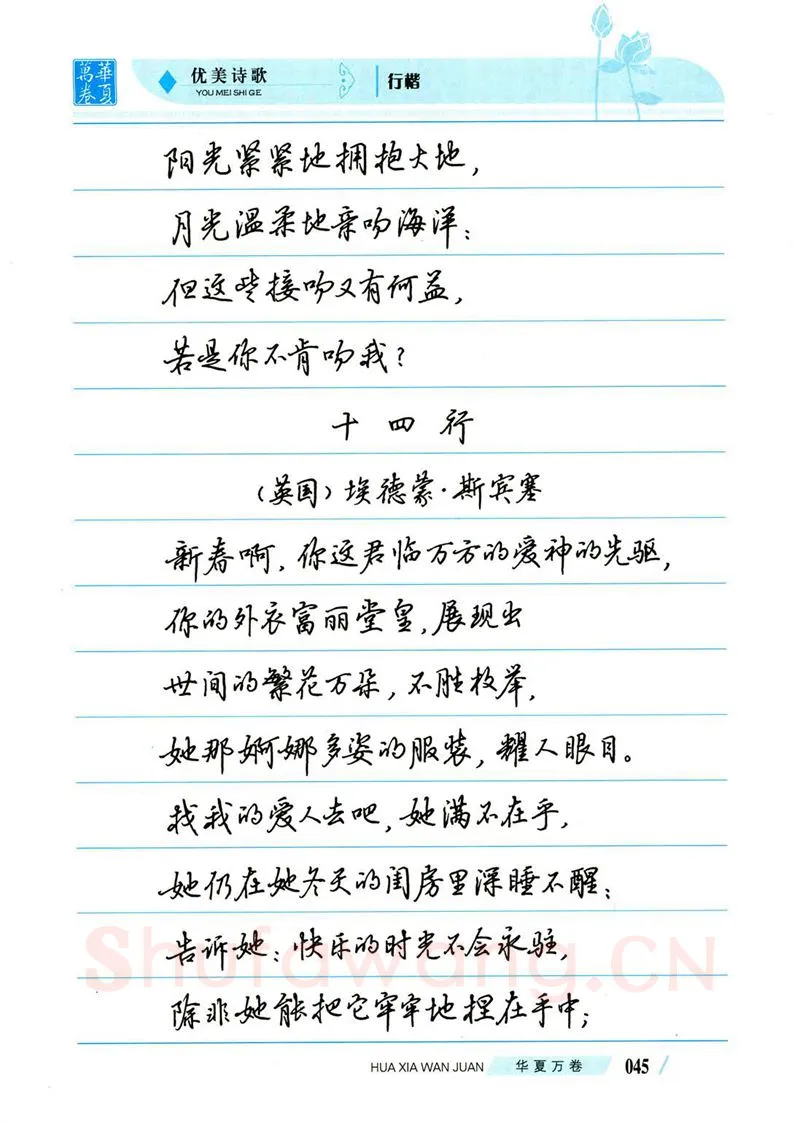 華夏
萬卷
优美诗歌
YOU MEI SHI GE
行楷
阳光紧紧地拥抱大地，
月光温柔地亲吻海洋；
但这些接吻又有何益，
若是你不肯吻我？
十四行
（英国）埃德蒙·斯宾塞
新春啊，你这君临万方的爱神的先驱，
你的外衣富丽堂皇，展现出
世间的繁花万朵，不胜枚举，
她那婀娜多姿的服装，耀人眼目。
找我的爱人去吧，她满不在乎，
她仍在她冬天的闺房里深睡不醒；
告诉她：快乐的时光不会永驻，
除非她能把它牢牢地捏在手中；
Shufawang.CN
HUA XIA WAN JUAN
华夏万卷
045